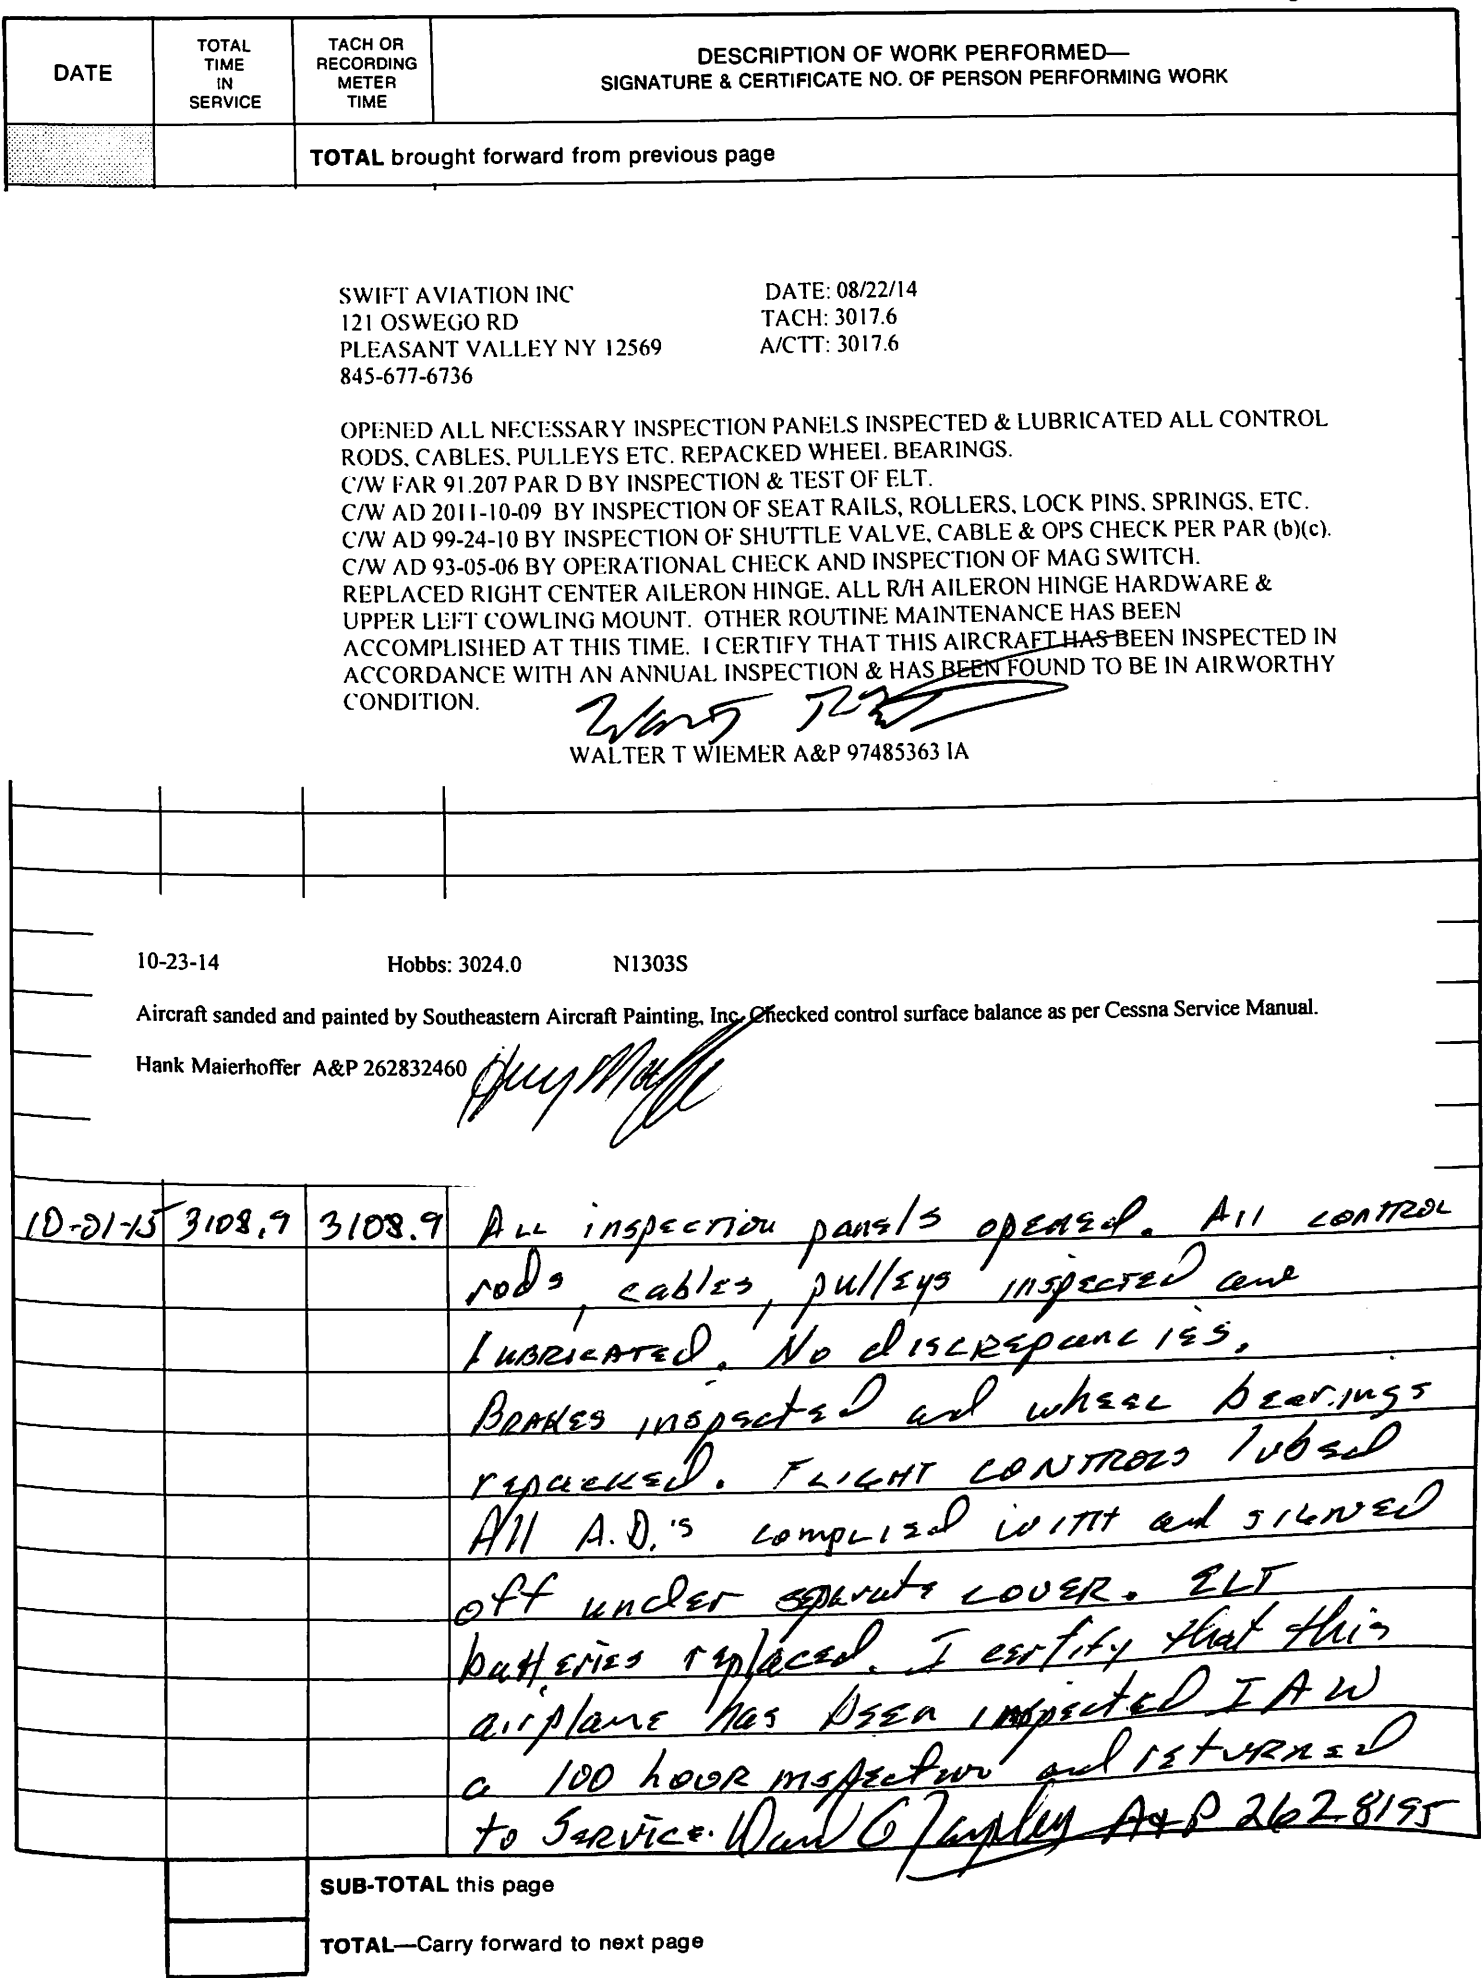 DATE
TOTAL TIME IN SERVICE
TACH OR RECORDING METER TIME
DESCRIPTION OF WORK PERFORMED—
SIGNATURE & CERTIFICATE NO. OF PERSON PERFORMING WORK
TOTAL brought forward from previous page
SWIFT AVIATION INC DATE: 08/22/14
121 OSWEGO RD TACH: 3017.6
PLEASANT VALLEY NY 12569 A/CTT: 3017.6
845-677-6736
OPENED ALL NECESSARY INSPECTION PANELS INSPECTED & LUBRICATED ALL CONTROL
RODS, CABLES, PULLEYS ETC. REPACKED WHEEL BEARINGS.
C/W FAR 91.207 PAR D BY INSPECTION & TEST OF ELT.
C/W AD 2011-10-09 BY INSPECTION OF SEAT RAILS, ROLLERS, LOCK PINS, SPRINGS, ETC.
C/W AD 99-24-10 BY INSPECTION OF SHUTTLE VALVE, CABLE & OPS CHECK PER PAR (b)(c).
C/W AD 93-05-06 BY OPERATIONAL CHECK AND INSPECTION OF MAG SWITCH.
REPLACED RIGHT CENTER AILERON HINGE, ALL R/H AILERON HINGE HARDWARE &
UPPER LEFT COWLING MOUNT. OTHER ROUTINE MAINTENANCE HAS BEEN
ACCOMPLISHED AT THIS TIME. I CERTIFY THAT THIS AIRCRAFT HAS BEEN INSPECTED IN
ACCORDANCE WITH AN ANNUAL INSPECTION & HAS BEEN FOUND TO BE IN AIRWORTHY
CONDITION.
WALTER T WIEMER A&P 97485363 IA
10-23-14 Hobbs: 3024.0 N1303S
Aircraft sanded and painted by Southeastern Aircraft Painting, Inc. Checked control surface balance as per Cessna Service Manual.
Hank Maierhoffer A&P 262832460
10-01-15 3108.9 3108.9 All inspection panels opened. All control
rods, cables, pulleys inspected and
lubricated. No discrepancies.
Brakes inspected and wheel bearings
repacked. Flight controls lubed
All A.D.'s complied with and signed
off under separate cover. ELT
batteries replaced. I certify that this
airplane has been inspected IAW
a 100 hour inspection and returned
to service. A&P 2628195
SUB-TOTAL this page
TOTAL—Carry forward to next page